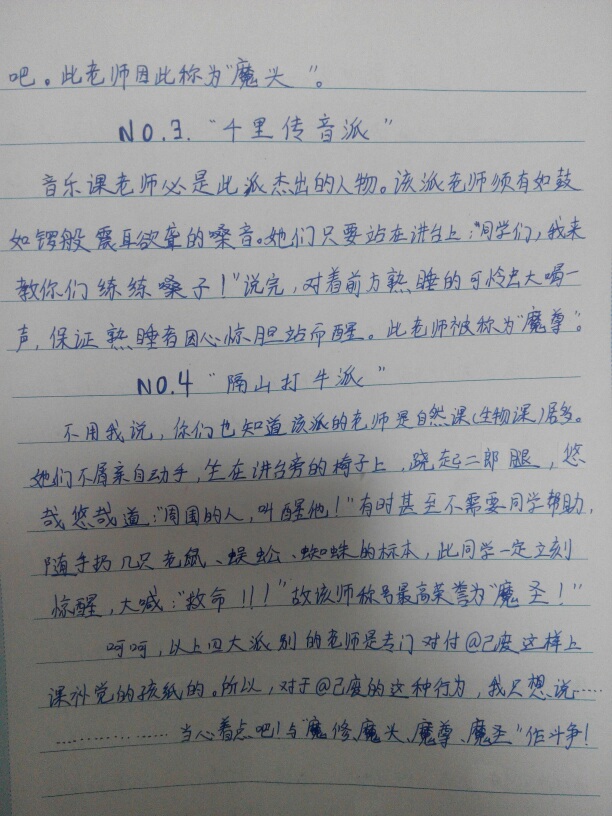 吧。此老师因此称为"魔头"。
NO.3."千里传音派"
音乐课老师必是此派杰出的人物。该派老师须有如鼓
如锣般震耳欲聋的嗓音。她们只要站在讲台上:"同学们,我来
教你们练练嗓子!"说完,对着前方熟睡的可怜虫大喝一
声,保证熟睡者因心惊胆站而醒。此老师被称为"魔尊"。
NO.4"隔山打牛派"
不用我说,你们也知道该派的老师是自然课(生物课)居多。
她们不屑亲自动手,坐在讲台旁的椅子上,跷起二郎腿,悠
哉悠哉道:"周围的人,叫醒他!"有时甚至不需要同学帮助,
随手扔几只老鼠、蜈蚣、蜘蛛的标本,此同学一定立刻
惊醒,大喊:"救命!!!"故该师称号最高荣誉为"魔圣!"
呵呵,以上四大派别的老师是专门对付@己度这样上
课补觉的孩纸的。所以,对于@己度的这种行为,我只想说……
…………… 当心着点吧!与"魔修、魔头、魔尊、魔圣"作斗争!